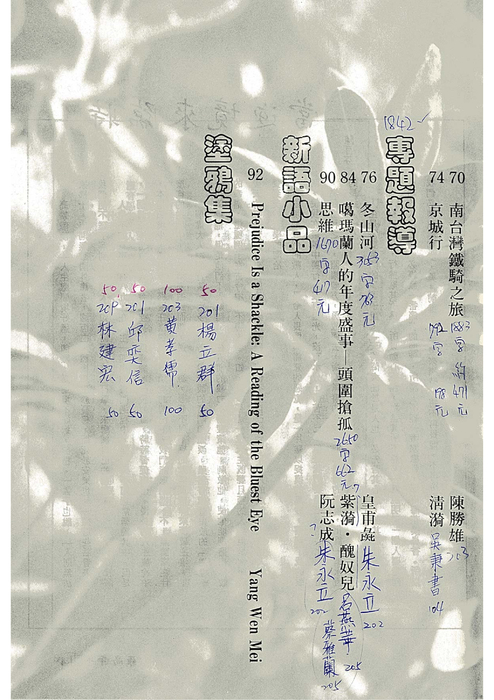 1842
專題報導
70 南台灣鐵騎之旅 1883字 約471元 陳勝雄 203
74 京城行 792字 198元 清漪 吳秉書 104
76 冬山河 3153字 783元 皇甫毳 朱永立 202
84 噶瑪蘭人的年度盛事—頭圍搶孤 2650字 662元 紫漪・醜奴兒 呂燕華 205
90 思維 1690字 417元 阮志成 朱永立 202 蔡雅蘭 205
新語小品
92 Prejudice Is a Shackle: A Reading of the Bluest Eye Yang Wen Mei
塗鴉集
50 201 楊立群 50
100 203 黃孝儒 100
50 201 邱奕信 50
50 209 林建宏 50